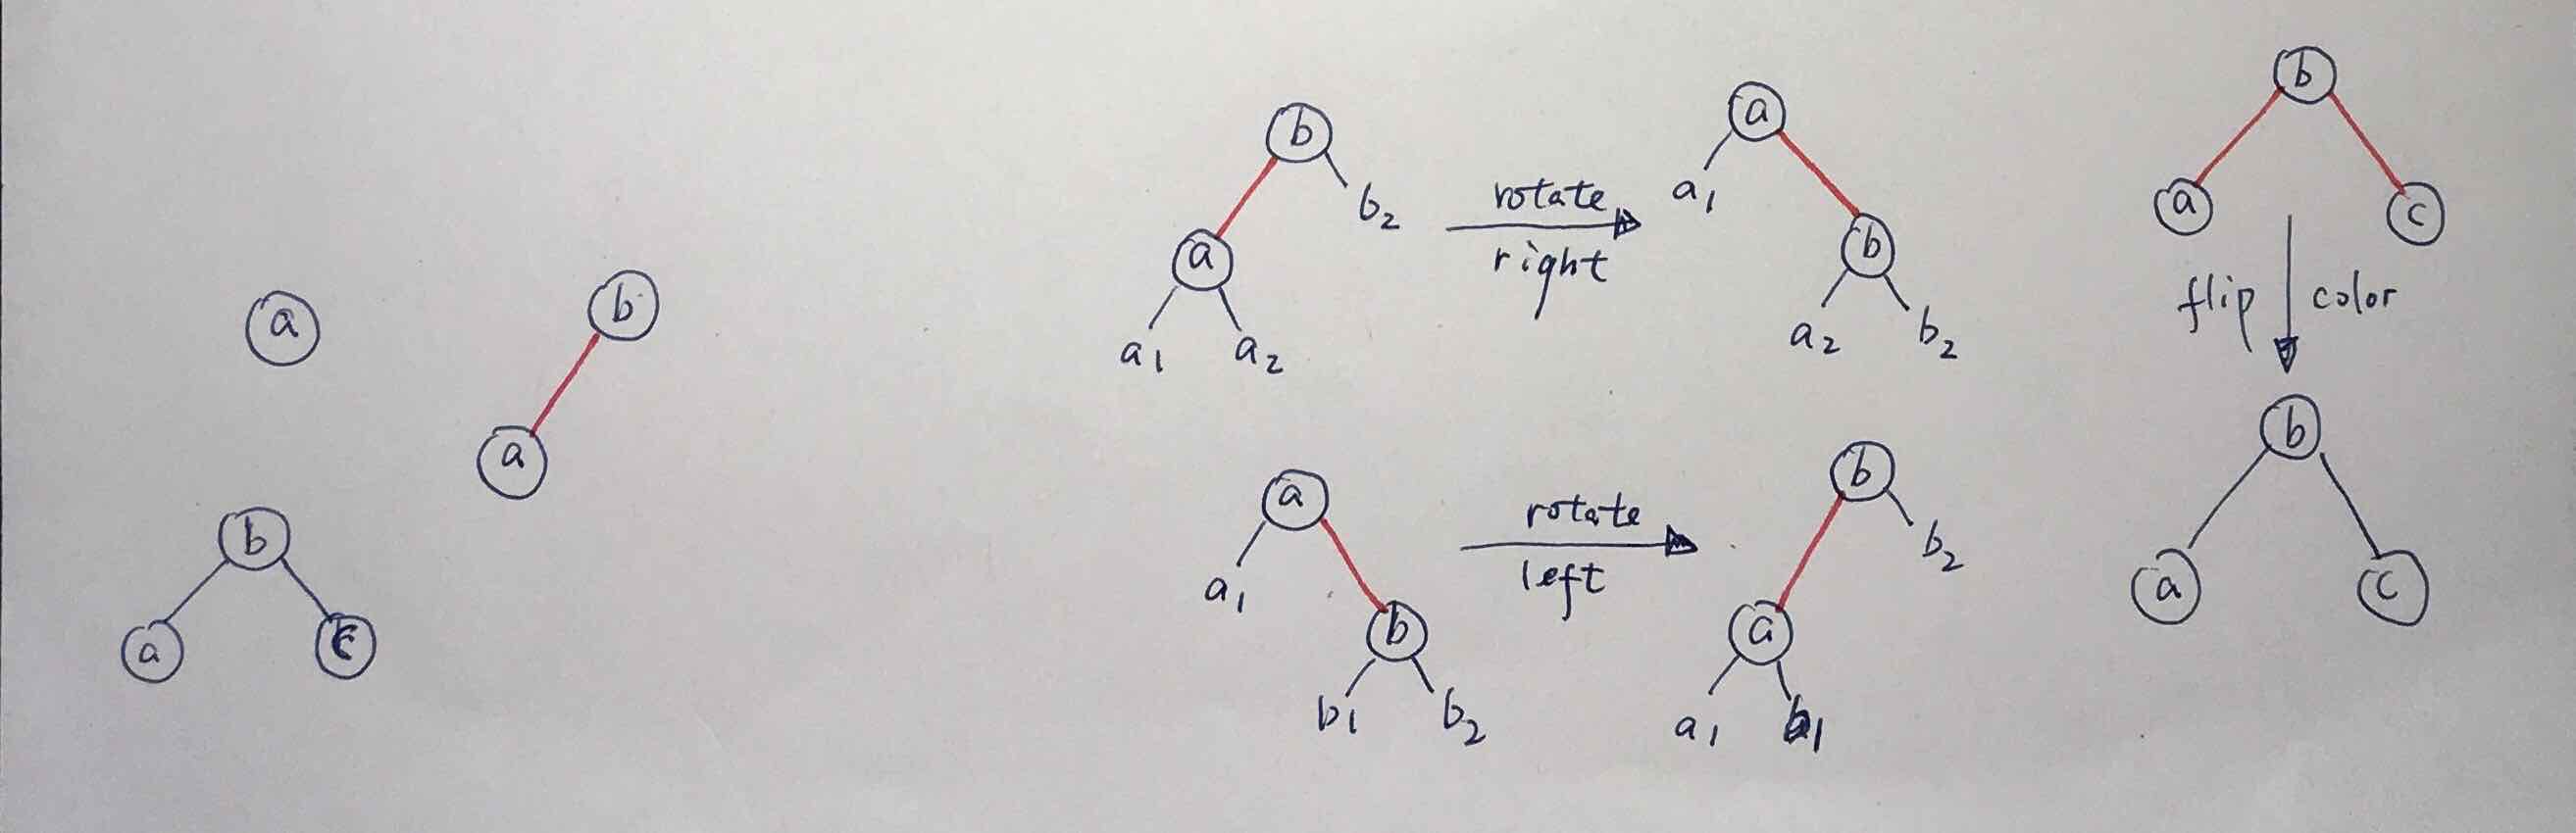 a
b
a
b
a
c
b
a
b2
a1
a2
rotate
right
a
a1
b
a2
b2
a
a1
b
b1
b2
rotate
left
b
b2
a
a1
b1
b
a
c
flip
color
b
a
c